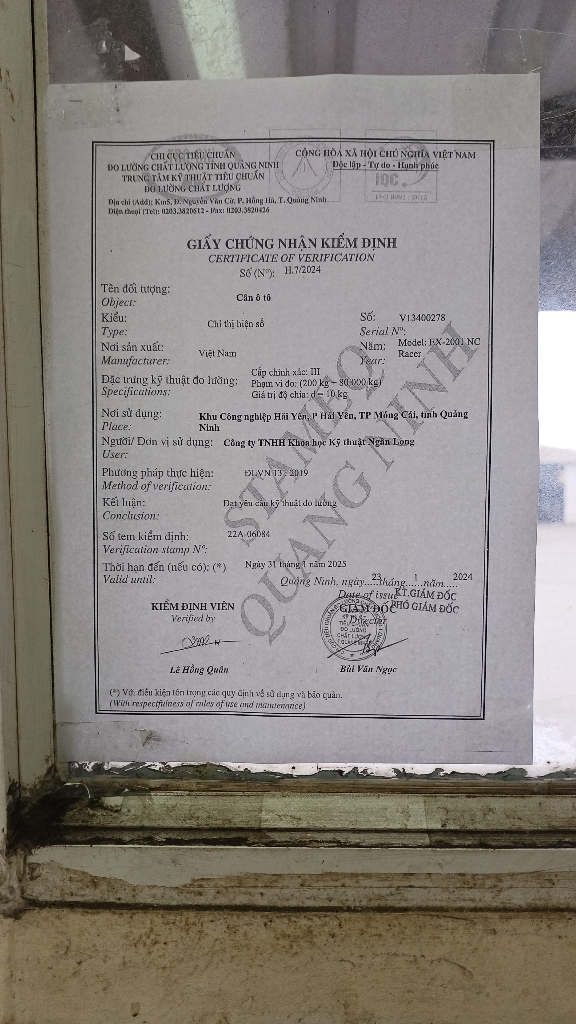 CHI CỤC TIÊU CHUẨN
ĐO LƯỜNG CHẤT LƯỢNG TỈNH QUẢNG NINH
TRUNG TÂM KỸ THUẬT TIÊU CHUẨN
ĐO LƯỜNG CHẤT LƯỢNG
Địa chỉ (Add): Km5, Đ. Nguyễn Văn Cừ, P. Hồng Hà, T. Quảng Ninh
Điện thoại (Tel): 0203.3820612 - Fax: 0203.3820426
CỘNG HÒA XÃ HỘI CHỦ NGHĨA VIỆT NAM
Độc lập - Tự do - Hạnh phúc
IQC
GIẤY CHỨNG NHẬN KIỂM ĐỊNH
CERTIFICATE OF VERIFICATION
Số (Nº): H.7/2024
Tên đối tượng: Cân ô tô
Object:
Kiểu: Chỉ thị hiện số Số: V13400278
Type: Serial Nº:
Nơi sản xuất: Việt Nam Năm: Model: EX-2001 NC
Manufacturer: Year: Racer
Đặc trưng kỹ thuật đo lường: Cấp chính xác: III
Specifications: Phạm vi đo: (200 kg ÷ 80 000 kg)
Giá trị độ chia: d = 10 kg
Nơi sử dụng: Khu Công nghiệp Hải Yên, P Hải Yên, TP Móng Cái, tỉnh Quảng
Place: Ninh
Người/ Đơn vị sử dụng: Công ty TNHH Khoa học Kỹ thuật Ngân Long
User:
Phương pháp thực hiện: ĐLVN 13 : 2019
Method of verification:
Kết luận: Đạt yêu cầu kỹ thuật đo lường
Conclusion:
Số tem kiểm định: 22A-06084
Verification stamp Nº:
Thời hạn đến (nếu có): (*) Ngày 31 tháng 1 năm 2025
Valid until:
Quảng Ninh, ngày 23 tháng 1 năm 2024
Date of issue
KIỂM ĐỊNH VIÊN
Verified by
KT.GIÁM ĐỐC
GIÁM ĐỐC PHÓ GIÁM ĐỐC
Director
Lê Hồng Quân
Bùi Văn Ngọc
(*) Với điều kiện tôn trọng các quy định về sử dụng và bảo quản.
(With respectfulness of rules of use and maintenance)
STAMEQ
QUANG NINH